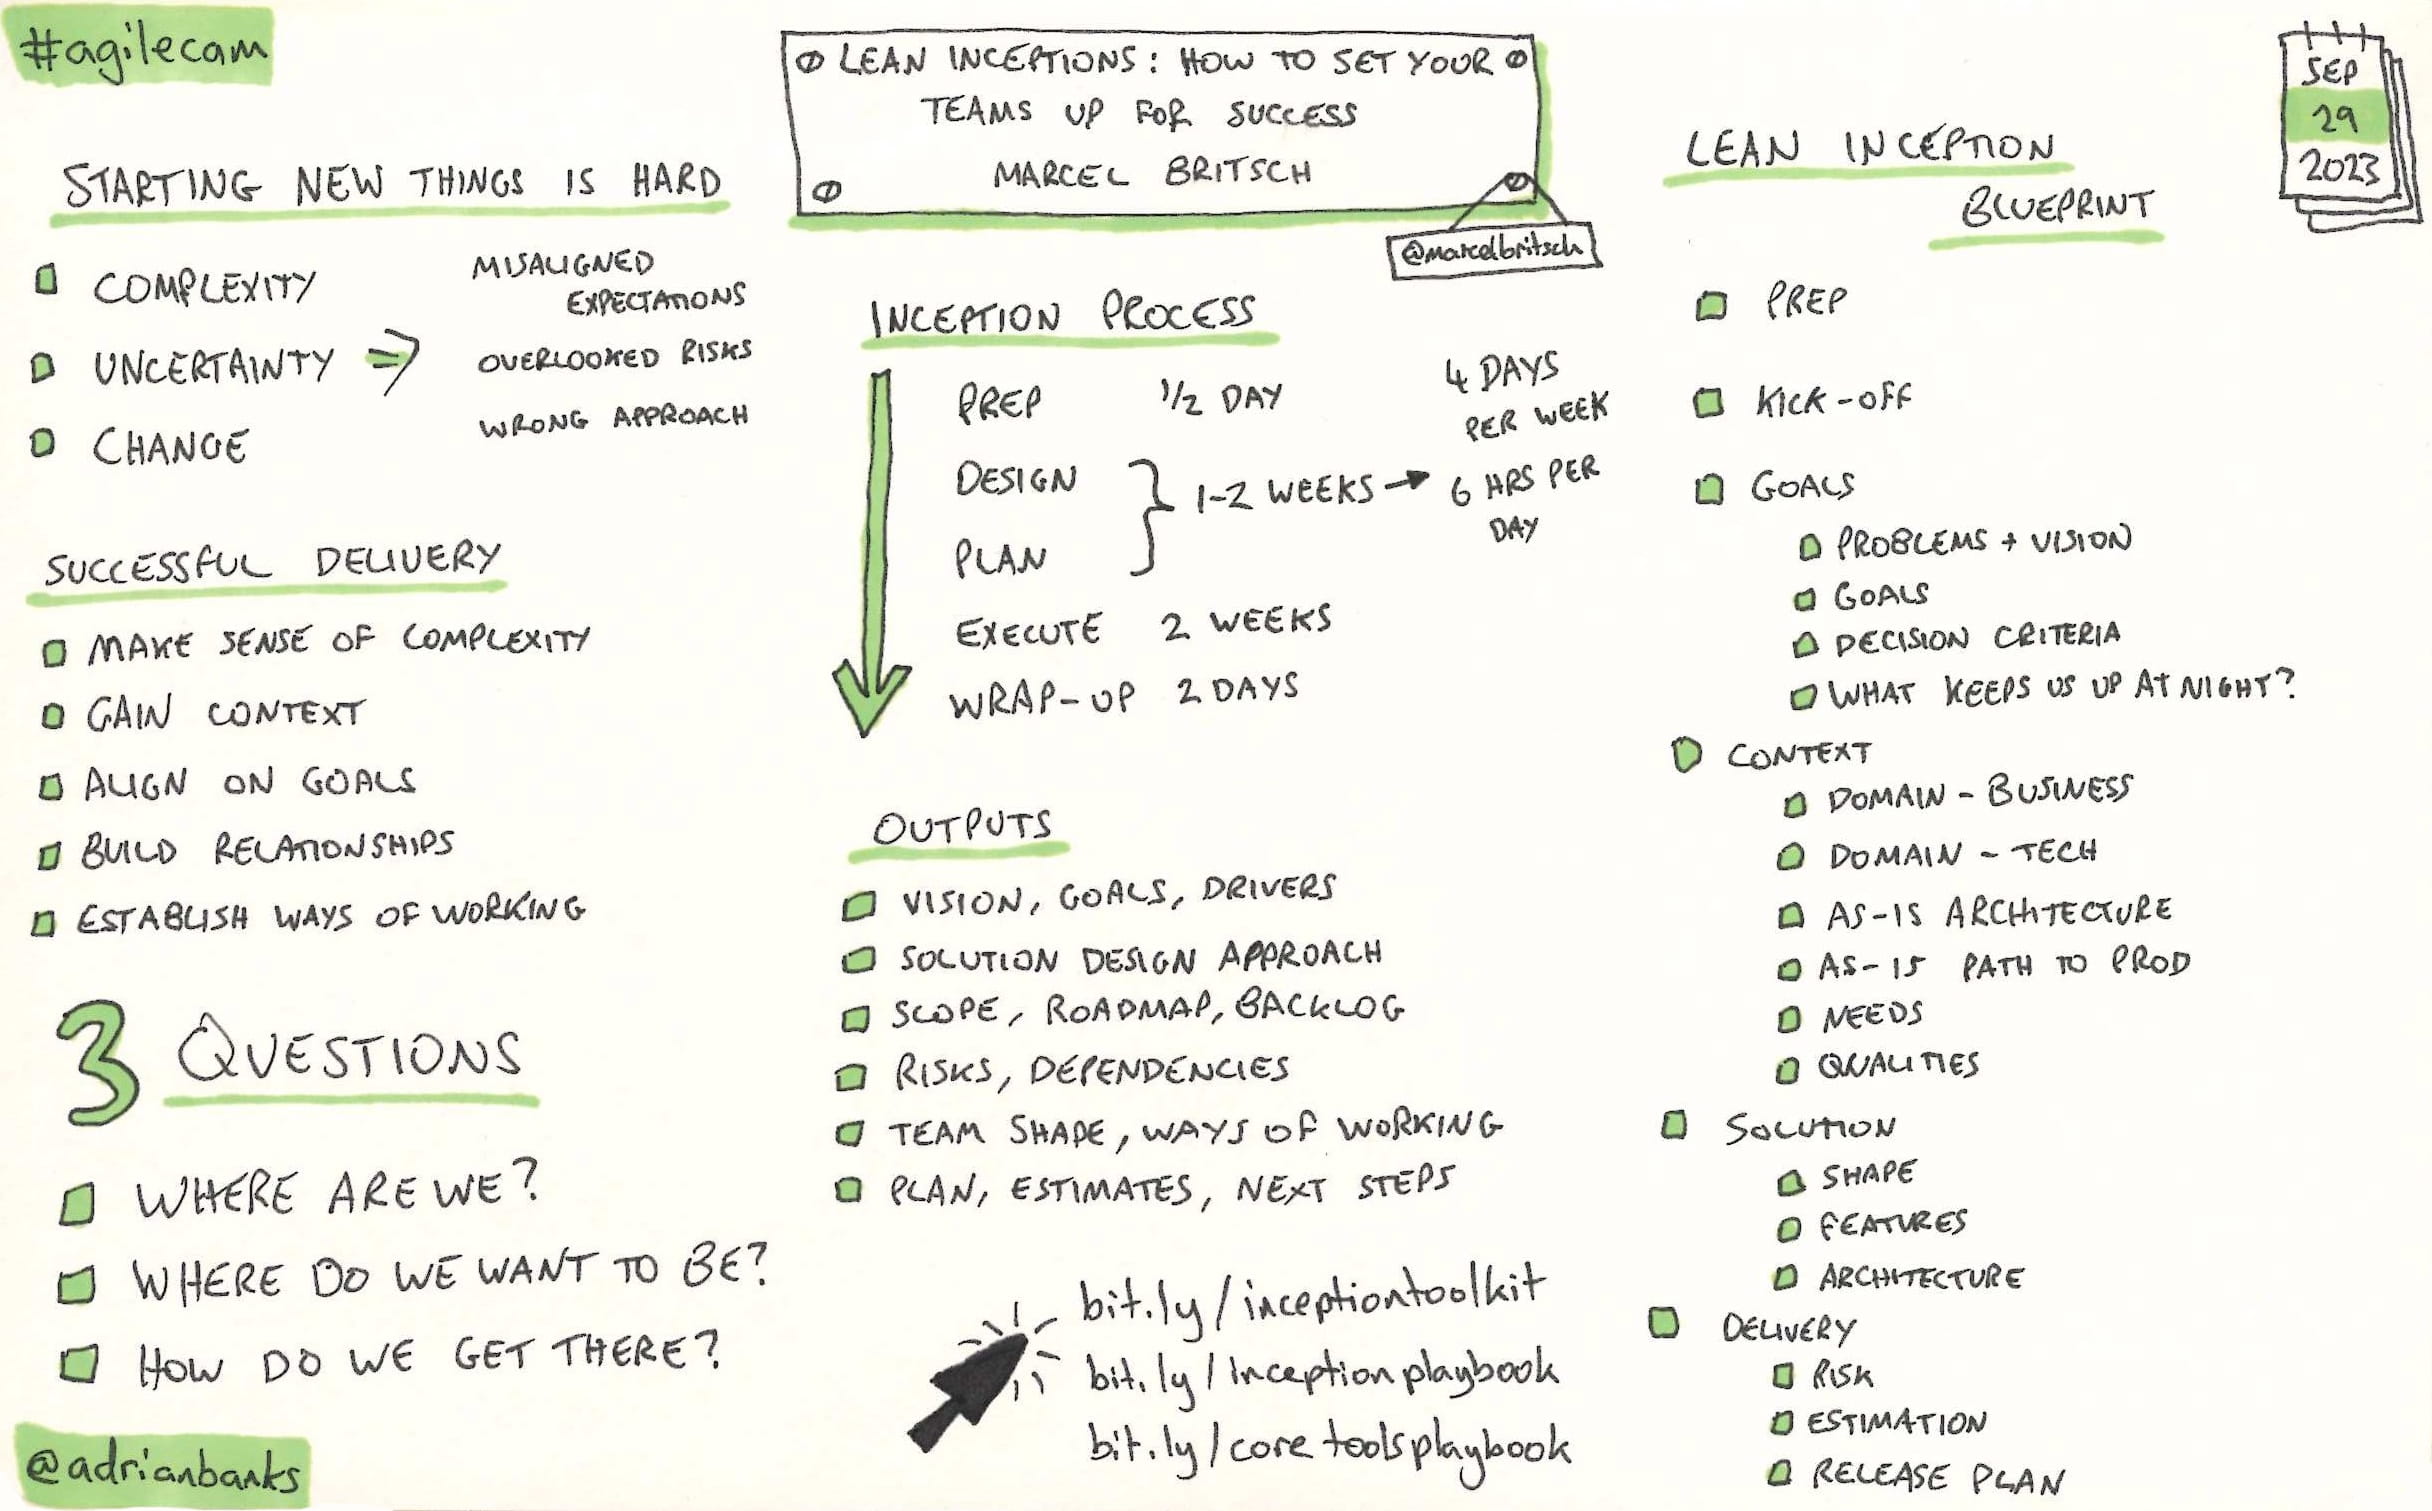 #agilecam
LEAN INCEPTIONS: HOW TO SET YOUR
TEAMS UP FOR SUCCESS
MARCEL BRITSCH
@marcelbritsch
SEP
29
2023
STARTING NEW THINGS IS HARD
COMPLEXITY
UNCERTAINTY ⇒
CHANGE
MISALIGNED
EXPECTATIONS
OVERLOOKED RISKS
WRONG APPROACH
SUCCESSFUL DELIVERY
MAKE SENSE OF COMPLEXITY
GAIN CONTEXT
ALIGN ON GOALS
BUILD RELATIONSHIPS
ESTABLISH WAYS OF WORKING
3 QUESTIONS
WHERE ARE WE?
WHERE DO WE WANT TO BE?
HOW DO WE GET THERE?
@adrianbanks
INCEPTION PROCESS
PREP 1/2 DAY
DESIGN
PLAN
1-2 WEEKS →
4 DAYS
PER WEEK
6 HRS PER
DAY
EXECUTE 2 WEEKS
WRAP-UP 2 DAYS
OUTPUTS
VISION, GOALS, DRIVERS
SOLUTION DESIGN APPROACH
SCOPE, ROADMAP, BACKLOG
RISKS, DEPENDENCIES
TEAM SHAPE, WAYS OF WORKING
PLAN, ESTIMATES, NEXT STEPS
bit.ly/inceptiontoolkit
bit.ly/inceptionplaybook
bit.ly/coretoolsplaybook
LEAN INCEPTION
BLUEPRINT
PREP
KICK-OFF
GOALS
PROBLEMS + VISION
GOALS
DECISION CRITERIA
WHAT KEEPS US UP AT NIGHT?
CONTEXT
DOMAIN - BUSINESS
DOMAIN - TECH
AS-IS ARCHITECTURE
AS-IS PATH TO PROD
NEEDS
QUALITIES
SOLUTION
SHAPE
FEATURES
ARCHITECTURE
DELIVERY
RISK
ESTIMATION
RELEASE PLAN